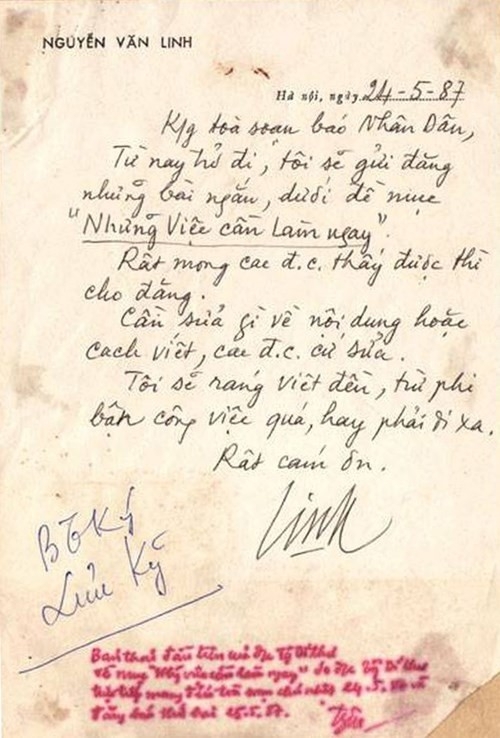 NGUYỄN VĂN LINH
Hà nội, ngày 24-5-87
K/g toà soạn báo Nhân Dân,
Từ nay trở đi, tôi sẽ gửi đăng
những bài ngắn, dưới đề mục
"Những Việc cần Làm ngay".
Rất mong các đ.c. thấy được thì
cho đăng.
Cần sửa gì về nội dung hoặc
cách viết, các đ.c. cứ sửa.
Tôi sẽ ráng viết đều, trừ phi
bận công việc quá, hay phải đi xa.
Rất cám ơn.
Linh
BT Ký
Lưu Kỹ
Bản thảo đầu tiên của đ/c Tổng Bí thư
về mục "Những việc cần làm ngay" do đ/c Tổng Bí thư
trực tiếp mang đến chủ nhật 24.5.87 và
đăng báo thứ hai 25.5.87.